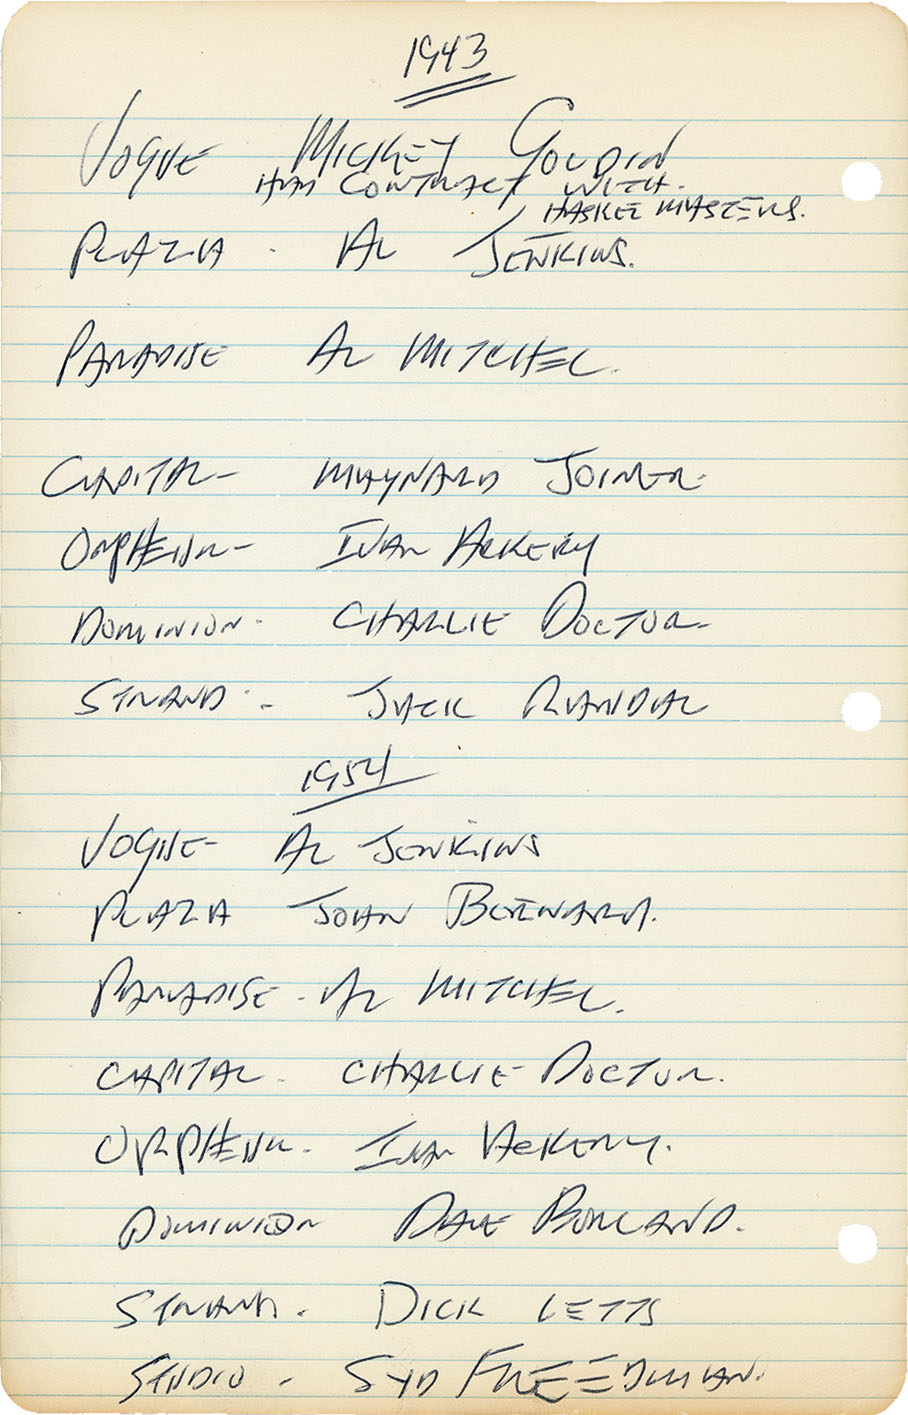 1943
VOGUE MICKEY GOLDIN
HAD CONTRACT WITH
HASKEL MASTERS.
PLAZA - AL JENKINS.
PARADISE AL MITCHEL.
CAPITAL - MAYNARD JOINER
ORPHEUM - IVAN ACKERY
DOMINION - CHARLIE DOCTOR
STRAND - JACK RANDAL
1954
VOGUE - AL JENKINS
PLAZA JOHN BERNARD.
PARADISE - AL MITCHEL.
CAPITAL - CHARLIE DOCTOR.
ORPHEUM - IVAN ACKERY.
DOMINION DAVE BORLAND.
STRAND - DICK LETTS
STUDIO - SYD FREEDMAN.